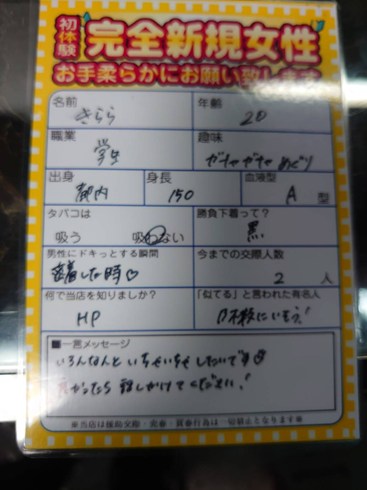 初体験 完全新規女性
お手柔らかにお願い致します
名前 きらら 年齢 20
職業 学生 趣味 ガチャガチャめぐり
出身 都内 身長 150 血液型 A 型
タバコは 吸う 吸わない 勝負下着って? 黒
男性にドキっとする瞬間 密着した時♡ 今までの交際人数 2 人
何で当店を知りましたか? HP 「似てる」と言われた有名人
■一言メッセージ
いろんな人といちゃいちゃしたいです
よかったら話しかけてください!
※当店は援助交際・売春・買春行為は一切禁止となります※